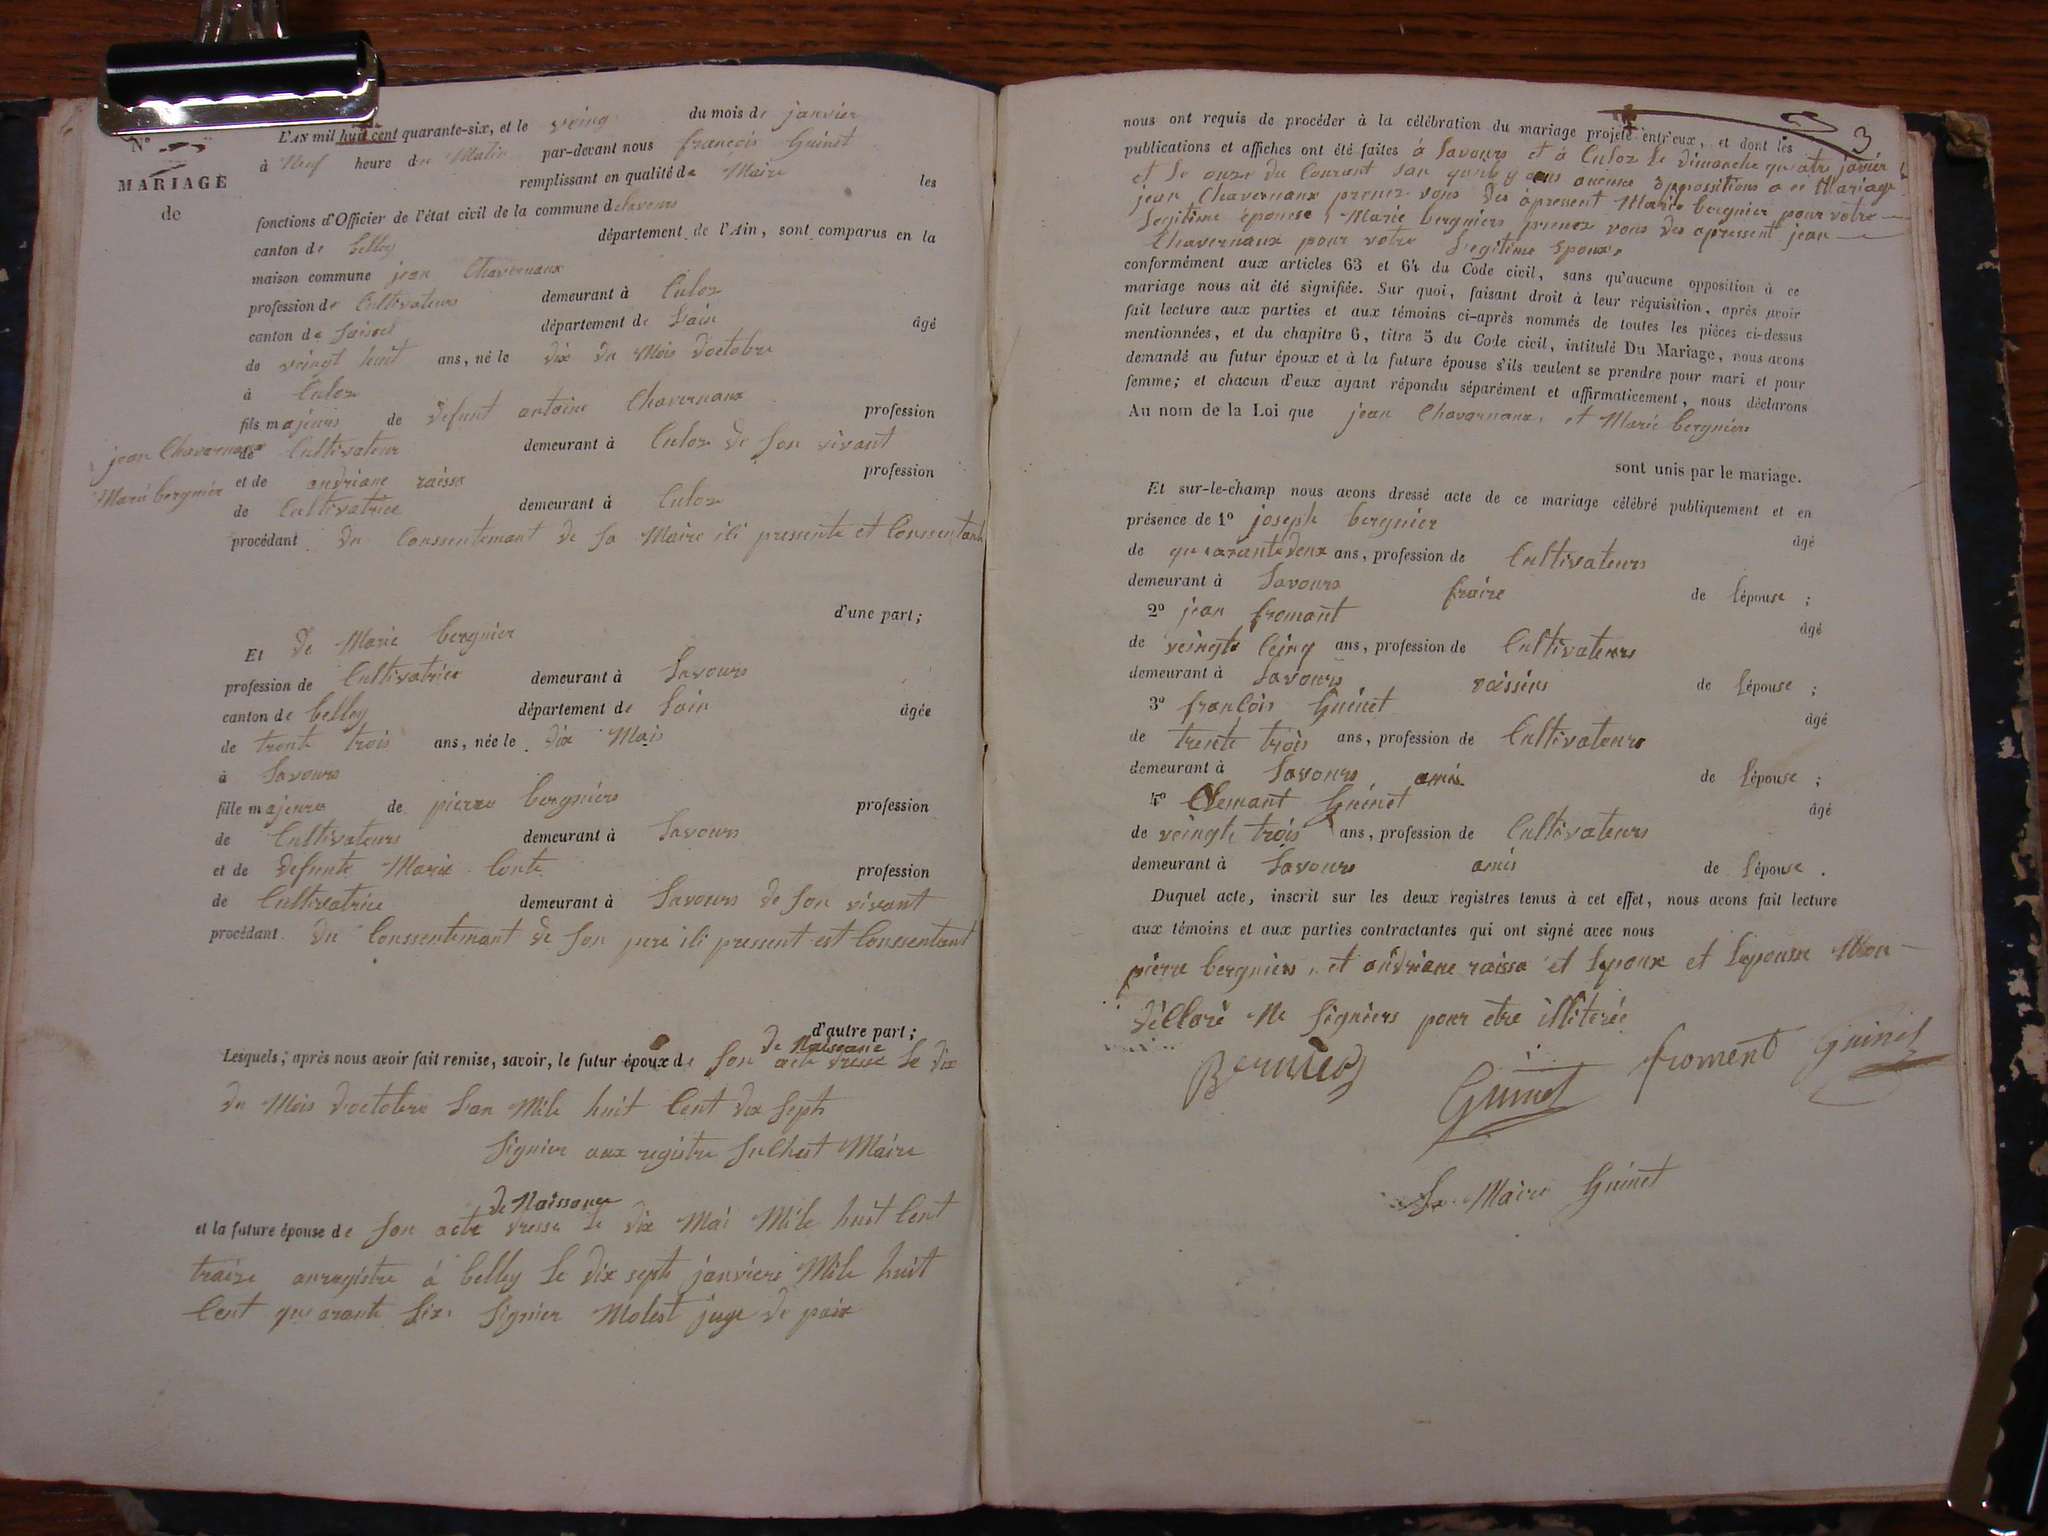 Nº
MARIAGE
de
jean Chavernaux
Marie bergnier
L'AN mil huit cent quarante-six, et le veing du mois de janvier
à Neuf heure du Matin par-devant nous françois Guinet
remplissant en qualité de Maire les
fonctions d'Officier de l'état civil de la commune de Savours
canton de belley département de l'Ain, sont comparus en la
maison commune jean Chavernaux
profession de Cultivateurs demeurant à Culoz
canton de département de Lain âgé
de veingt huit ans, né le dix du Mois doctobre
à Culoz
fils majeurs de defunt antoine Chavernaux profession
de Cultivateur demeurant à Culoz de son vivant
et de andriane raissa profession
de Cultivatrice demeurant à Culoz
procédant du Conssentemant de sa Maire ili pressente et Conssentante
d'une part;
Et de Marie bergnier
profession de Cultivatrice demeurant à Savours
canton de belley département de Lain âgée
de trente trois ans, née le dix Mais
à Savours
fille majeure de pierre bergniers profession
de Cultivateurs demeurant à Savours
et de defunte Marie Conte profession
de Cultivatrice demeurant à Savours de son vivant
procédant du Conssentemant de son pere ili pressent est Conssentant
d'autre part;
de Naissance
Lesquels, après nous avoir fait remise, savoir, le futur époux de son acte dresse le dix
du Mois doctobre Lan Mile huit Cent dix septs
signier aux registre Maire
de Naissance
et la future épouse de son acte dresse le dix Mai Mile huit Cent
traize anregistre à belley le dix sept janviers Mile huit
Cent quarante six signier Molest juge de paix
3
nous ont requis de procéder à la célébration du mariage projeté entr'eux, et dont les
publications et affiches ont été faites à Savours et à Culoz le dimanche quatre javier
et le onze du Courant san quily eus aucune oppossitions a ce Mariage
jean Chavernaux prenez vous des àpressent Marie bergnier pour vôtre
Legitime épouese, Marie bergniers prenez vous des apressent jean
Chavernaux pour votre Legitime époux.
conformément aux articles 63 et 64 du Code civil, sans qu'aucune opposition à ce
mariage nous ait été signifiée. Sur quoi, faisant droit à leur réquisition, après avoir
fait lecture aux parties et aux témoins ci-après nommés de toutes les pièces ci-dessus
mentionnées, et du chapitre 6, titre 5 du Code civil, intitulé Du Mariage, nous avons
demandé au futur époux et à la future épouse s'ils veulent se prendre pour mari et pour
femme; et chacun d'eux ayant répondu séparément et affirmativement, nous déclarons
Au nom de la Loi que jean Chavarnaux, et Marie bergniere
sont unis par le mariage.
Et sur-le-champ nous avons dressé acte de ce mariage célébré publiquement et en
présence de 1º joseph bergnier âgé
de quarante deux ans, profession de Cultivateurs
demeurant à Savours fraire de Lépouse ;
2º jean fromant âgé
de veingte Ceinq ans, profession de Cultivateurs
demeurant à Savours voissins de Lépouse ;
3º françois Guinet âgé
de trente trois ans, profession de Cultivateurs
demeurant à Savours amis de Lépouse ;
4º Clemant Guinet âgé
de veingte trois ans, profession de Cultivateurs
demeurant à Savours amis de Lépouse .
Duquel acte, inscrit sur les deux registres tenus à cet effet, nous avons fait lecture
aux témoins et aux parties contractantes qui ont signé avec nous
pierre bergniers, et andriane raissa et Lepoux et Lepousse Mon
délloré Ne signiers pour etre illiterée
Bernier
Guinet
froment
Guinet
Le Maire Guinet